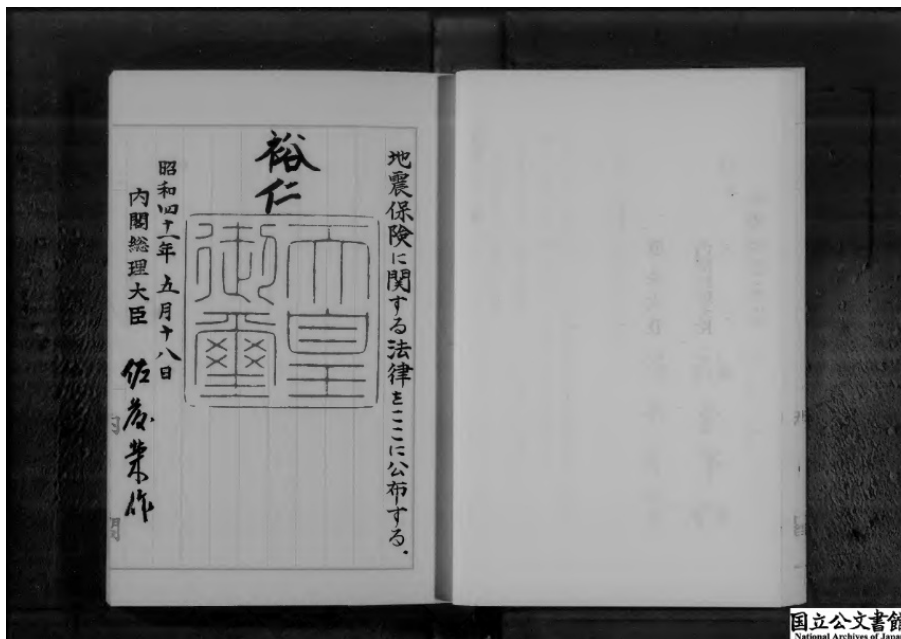 地震保険に関する法律をここに公布する。
裕仁
天皇
御璽
昭和四十一年五月十八日
内閣総理大臣 佐藤榮作
国立公文書館
National Archives of Japan